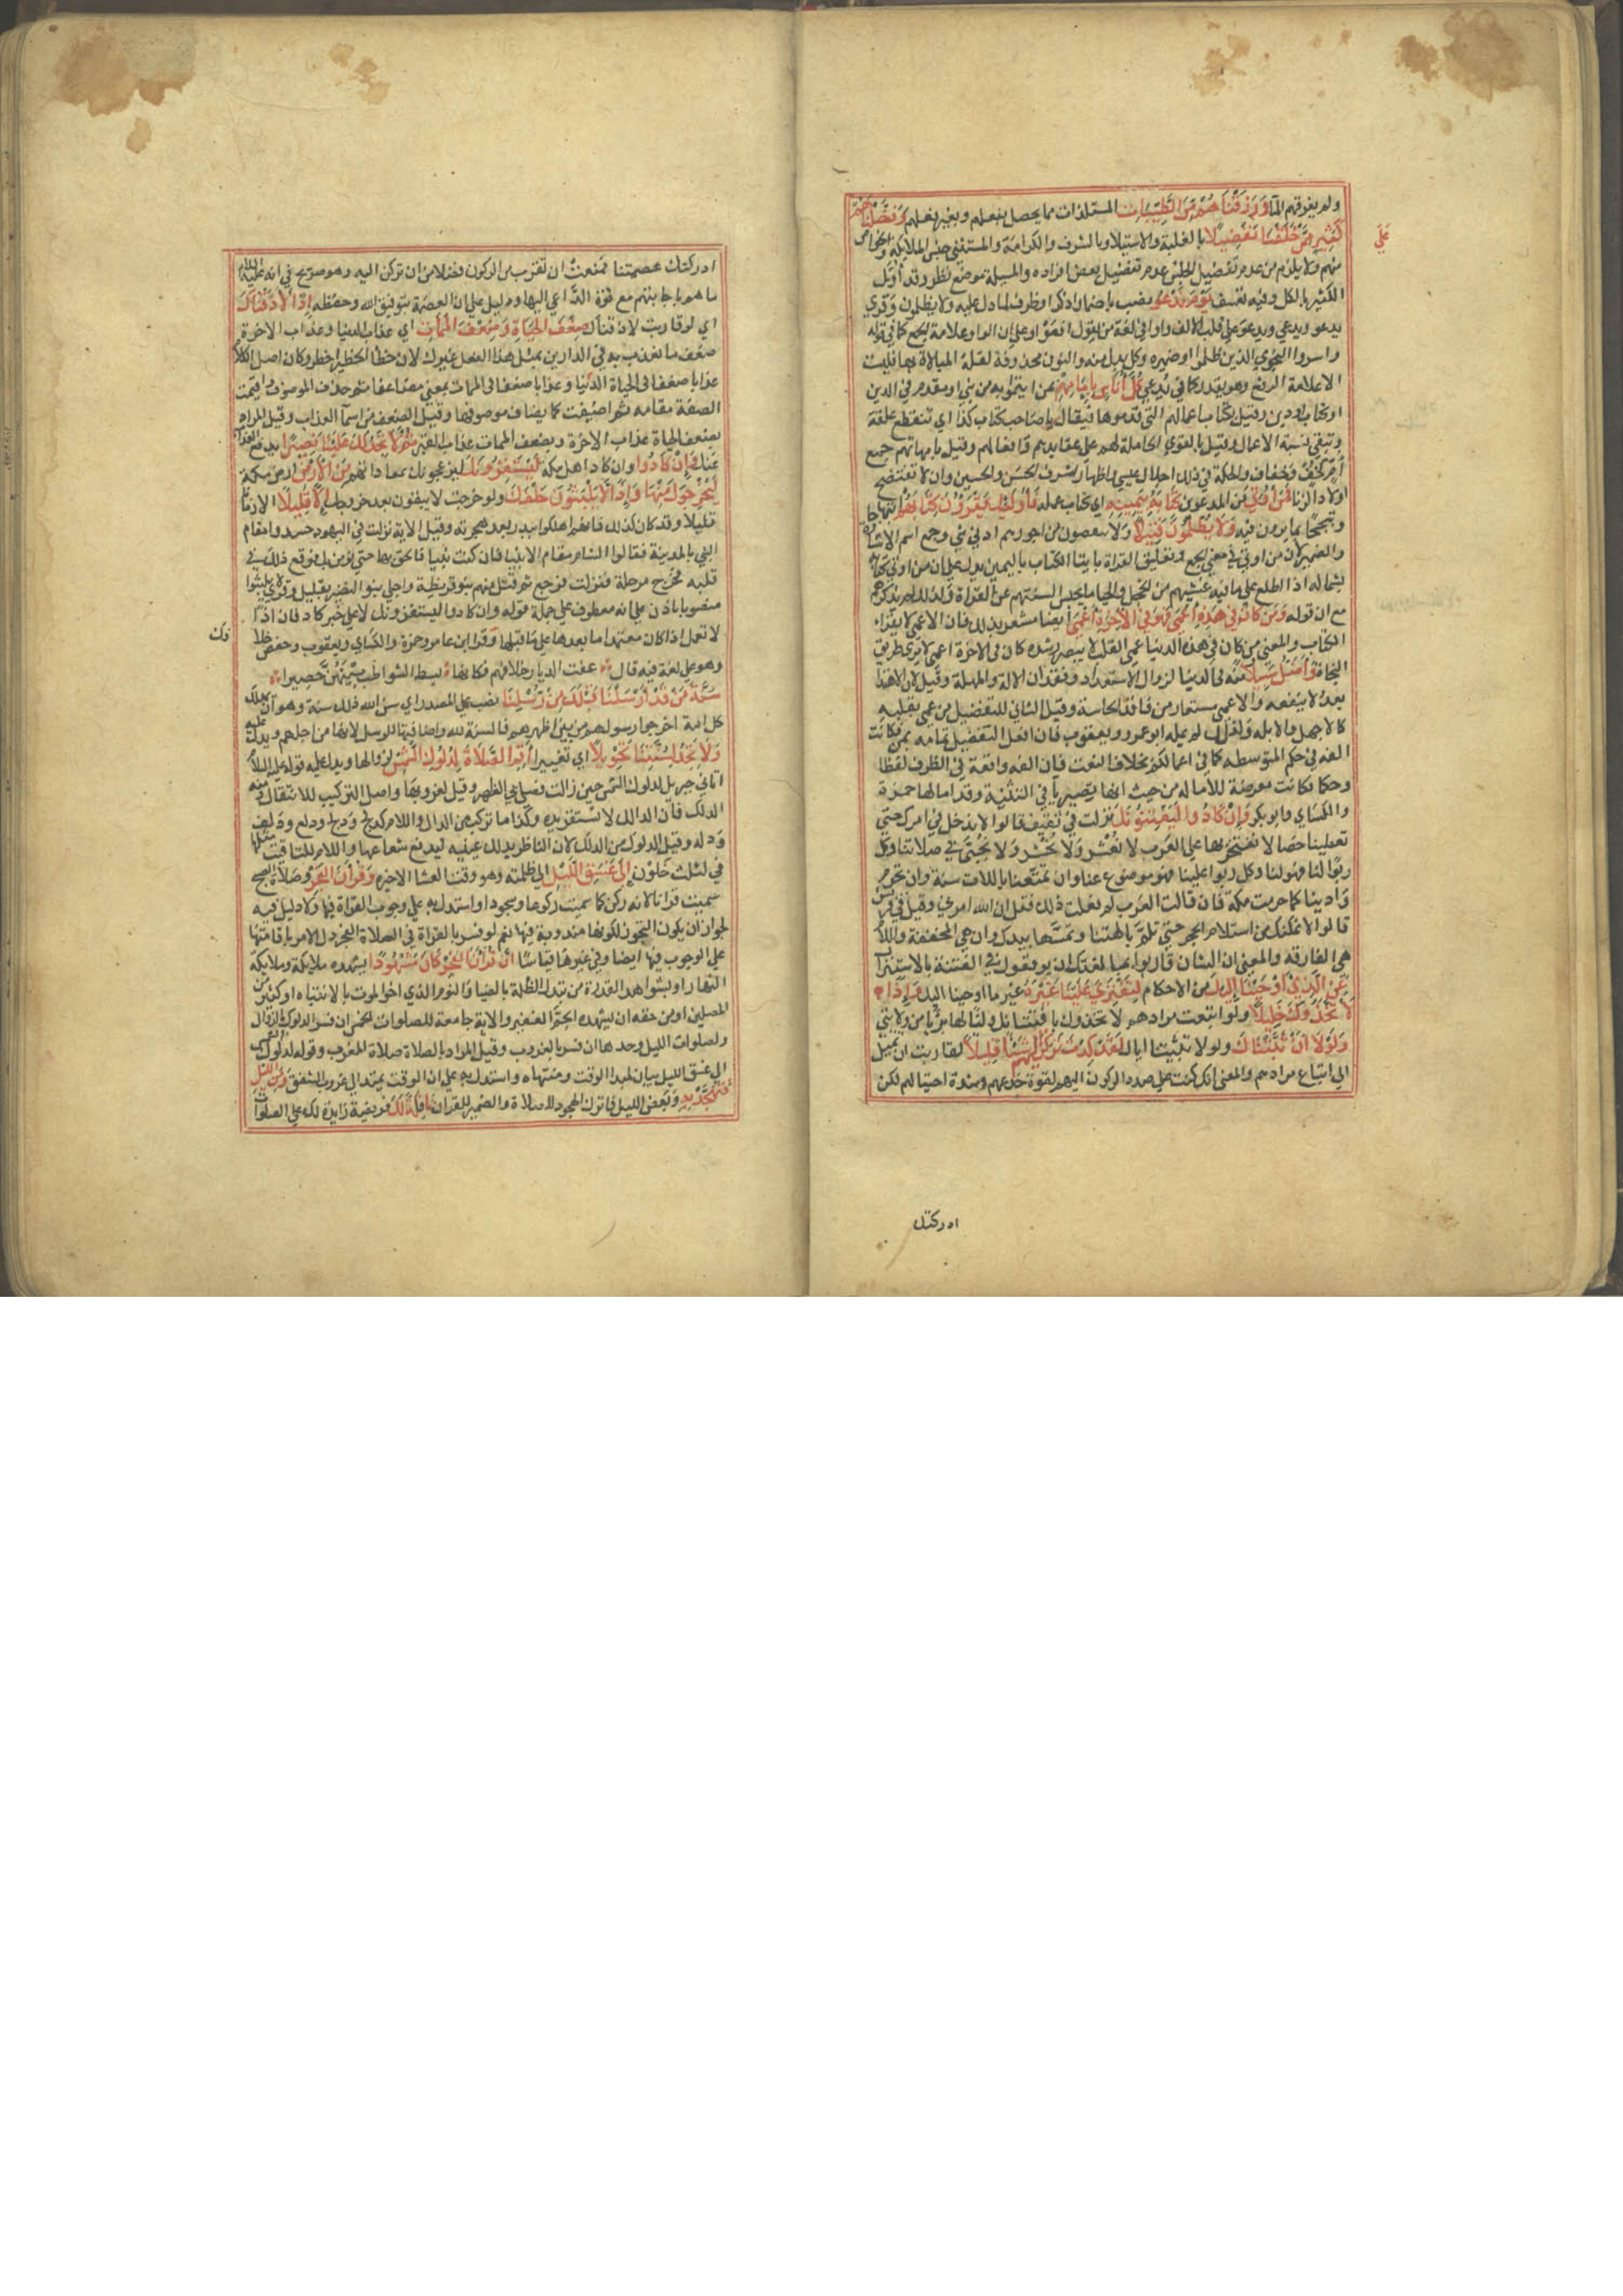 ولم يغرقهم الماء وَرَزَقْنَاهُمْ مِنَ الطَّيِّبَاتِ المستلذات مما يحصل بفعلهم وبغير فعلهم وَفَضَّلْنَاهُمْ
عَلَى
كَثِيرٍ مِمَّنْ خَلَقْنَا تَفْضِيلًا بالغلبة والاستيلا وبالشرف والكرامة والمستثنى جنس الملائكة او الخواص
منهم ولا يلزم من عدم تفضيل الجنس عدم تفضيل بعض افراده والمسئلة موضع نظر وقد أول
الكثير بالكل وفيه تعسف يَوْمَ نَدْعُو نصب باضمار اذكر او ظرف لما دل عليه ولا يظلمون وقري
يدعو ويدعي ويدعو على قلب الالف واوا في لغة من يقول افعو او على ان الواو علامة الجمع كما في قوله
واسروا النجوي الذين ظلموا او ضميره وكل بدل منه والنون محذوفة لقلة المبالاة بها فليست
الا علامة الرفع وهو قد يقدر كما في يدعي كُلَّ أُنَاسٍ بِإِمَامِهِمْ بمن ايتموا به من نبي او مقدم في الدين
او كتاب او دين وقيل بكتاب اعمالهم التي قدموها فيقال يا صاحب كتاب كذا اي تنقطع علقة
وتبقي نسبة الاعمال وقيل بالقوي الحاملة لهم على عقايدهم وافعالهم وقيل بامهاتهم جمع
أم كخف وخفاف والحكمة في ذلك اجلال عيسي واظهار شرف الحسن والحسين وان لا تفتضح
اولاد الزنا فَمَنْ أُوتِيَ من المدعوين كِتَابَهُ بِيَمِينِهِ اي كتاب عمله فَأُولَئِكَ يَقْرَؤُنَ كِتَابَهُمْ ابتهاجا
وتبجحا بما يرون فيه وَلَا يُظْلَمُونَ فَتِيلًا ولا ينقصون من اجورهم ادني شي وجمع اسم الاشارة
والضمير لان من اوتي في معنى الجمع وتعليق القراة بايتا الكتاب باليمين يدل على ان من اوتي كتابه
بشماله اذا اطلع على ما فيه غشيهم من الخجل والحيا ما يحبس السنتهم عن القراة ولذلك لم يذكرهم
مع ان قوله وَمَنْ كَانَ فِي هَذِهِ أَعْمَى فَهُوَ فِي الْآخِرَةِ أَعْمَى ايضا مشعر بذلك فان الاعمى لا يقراء
الكتاب والمعنى من كان في هذه الدنيا عمى القلب لا يبصر رشده كان في الاخرة اعمى لا يرى طريق
النجاة وَأَضَلُّ سَبِيلًا منه في الدنيا لزوال الاستعداد وفقدان الالة والمهلة وقيل لان الاهتدا
بعد لا ينفعه والاعمى مستعار من فاقد الحاسة وقيل الثاني للتفضيل من عمى بقلبه
كالاجهل والابله ولذلك لم يمله ابو عمرو ويعقوب فان افعل التفضيل تمامه بمن فكانت
الفه في حكم المتوسطه كما في اعمالكم بخلاف النعت فان الفه واقعة في الطرف لفظا
وحكما فكانت معرضة للأماله من حيث انها يصير يا في التثنية وقد امالها حمزة
والكساي وابو بكر وَإِنْ كَادُوا لَيَفْتِنُونَكَ نزلت في ثقيف قالوا لا ندخل في امرك حتي
تعطينا خصالا نفتخر بها على العرب لا نُعْشَر ولا نُحْشَر ولا نُجَبَّى في صلاتنا وكل
ربًا لنا فهو لنا وكل ربوا علينا فهو موضوع عنا وان تمتعنا باللات سنة وان تحرم
وادينا كما حرمت مكة فان قالت العرب لم فعلت ذلك فقل ان الله امرني وقيل في قريش
قالوا لا نمكنك من استلام الحجر حتى تلم بالهتنا وتمسها بيدك وان هي المخففة واللام
هي الفارقه والمعنى ان الشان قاربوا بمبالغتهم ان يوقعوك في الفتنة بالاستنزال
عَنِ الَّذِي أَوْحَيْنَا إِلَيْكَ من الاحكام لِتَفْتَرِيَ عَلَيْنَا غَيْرَهُ غير ما اوحينا اليك وَإِذًا
لَاتَّخَذُوكَ خَلِيلًا ولو اتبعت مرادهم لاتخذوك بافتتانك وليا لهم بريا من ولايتي
وَلَوْلَا أَنْ ثَبَّتْنَاكَ ولولا تثبيتنا اياك لَقَدْ كِدْتَ تَرْكَنُ إِلَيْهِمْ شَيْئًا قَلِيلًا لقاربت ان تميل
الى اتباع مرادهم والمعنى انك كنت على صدد الركون اليهم لقوة خدعهم وشدة احتيالهم لكن
ادركتك
ادركتك عصمتنا فمنعت ان تقترب من الركون فضلا من ان تركن اليه وهو صريح في انه عليه السلام
ما هم باجابتهم مع قوة الداعي اليها ودليل على ان العصمة بتوفيق الله وحفظه إِذًا لَأَذَقْنَاكَ
اي لو قاربت لاذقناك ضِعْفَ الْحَيَاةِ وَضِعْفَ الْمَمَاتِ اي عذاب الدنيا وعذاب الاخرة
ضعف ما نعذب به في الدارين بمثل هذا الفعل غيرك لان خطا الخطير اخطر وكان اصل الكلام
عذابا ضعفا في الحياة الدنيا وعذابا ضعفا في الممات بمعنى مضاعفا ثم حذف الموصوف واقيمت
الصفة مقامه ثم اضيفت كما يضاف موصوفها وقيل الضعف من اسما العذاب وقيل المراد
بضعف الحياة عذاب الاخرة وبضعف الممات عذاب القبر ثُمَّ لَا تَجِدُ لَكَ عَلَيْنَا نَصِيرًا يدفع العذاب
عنك وَإِنْ كَادُوا وان كاد اهل مكة لَيَسْتَفِزُّونَكَ ليزعجونك بمعاداتهم مِنَ الْأَرْضِ ارض مكة
لِيُخْرِجُوكَ مِنْهَا وَإِذًا لَا يَلْبَثُونَ خَلْفَكَ ولو خرجت لا يبقون بعد خروجك إِلَّا قَلِيلًا الا زمانا
قليلا وقد كان كذلك فانهم اهلكوا ببدر بعد هجرته وقيل الاية نزلت في اليهود حسدوا مقام
النبي بالمدينة فقالوا الشام مقام الانبيا فان كنت نبيا فالحق بها حتى نؤمن بك فوقع ذلك في
قلبه فخرج مرحلة فنزلت فرجع ثم قتل منهم بنو قريظة واجلي بنو النضير بقليل وقري لا يلبثوا
منصوبا باذن على انه معطوف على جملة قوله وان كادوا ليستفزونك لا على خبر كاد فان اذًا
لا تعمل اذا كان معتمدا ما بعدها على ما قبلها وقرا ابن عامر وحمزة والكساي ويعقوب وحفص خلا
فك
وهو على لغة فيه قال عفت الديار خلافهم فكانما بسط الشواطب بينهن حصيرا
سُنَّةَ مَنْ قَدْ أَرْسَلْنَا قَبْلَكَ مِنْ رُسُلِنَا نصب على المصدر اي سن الله ذلك سنة وهو ان يهلك
كل امة اخرجوا رسولهم من بين اظهرهم فالسنة لله واضافتها للرسل لانها من اجلهم ويدل عليه
وَلَا تَجِدُ لِسُنَّتِنَا تَحْوِيلًا اي تغييرا أَقِمِ الصَّلَاةَ لِدُلُوكِ الشَّمْسِ لزوالها ويدل عليه قوله عليه السلام
اتاني جبريل لدلوك الشمس حين زالت فصلى بي الظهر وقيل لغروبها واصل التركيب للانتقال ومنه
الدلك فان الدالك لا تستقر يده وكذا ما تركب من الدال واللام كدلج ودلح ودلع ودلف
ودله وقيل الدلوك من الدلك لان الناظر يدلك عينيه ليدفع شعاعها واللام للتاقيت مثلها
في لثلث خلون إِلَى غَسَقِ اللَّيْلِ الى ظلمته وهو وقت العشا الاخيره وَقُرْآنَ الْفَجْرِ وصلاة الصبح
سميت قرانا لانه ركن كما سميت ركوعا وسجودا واستدل به على وجوب القراة فيها ولا دليل فيه
لجواز ان يكون التجوز لكونها مندوبة فيها نعم لو فسر بالقراة في الصلاة الفجر دل الامر باقامتها
على الوجوب فيها ايضا وفي غيرها قياسا إِنَّ قُرْآنَ الْفَجْرِ كَانَ مَشْهُودًا يشهده ملايكة وملايكة
النهار او لشواهد القدرة من تبدل الظلمة بالضيا والنوم الذي اخو الموت بالانتباه او كثير من
المصلين او من حقه ان يشهده الجم الغفير والاية جامعة للصلوات الخمس ان فسر الدلوك بالزوال
ولصلوات الليل وحدها ان فسر بالغروب وقيل المراد بالصلاة صلاة المغرب وقوله لدلوك الشمس
الى غسق الليل بيان لمبدا الوقت ومنتهاه واستدل به على ان الوقت يمتد الى غروب الشفق وَمِنَ اللَّيْلِ
فَتَهَجَّدْ بِهِ وبعض الليل فاترك الهجود للصلاة والضمير للقران نَافِلَةً لَكَ فريضة زايدة لك على الصلوات